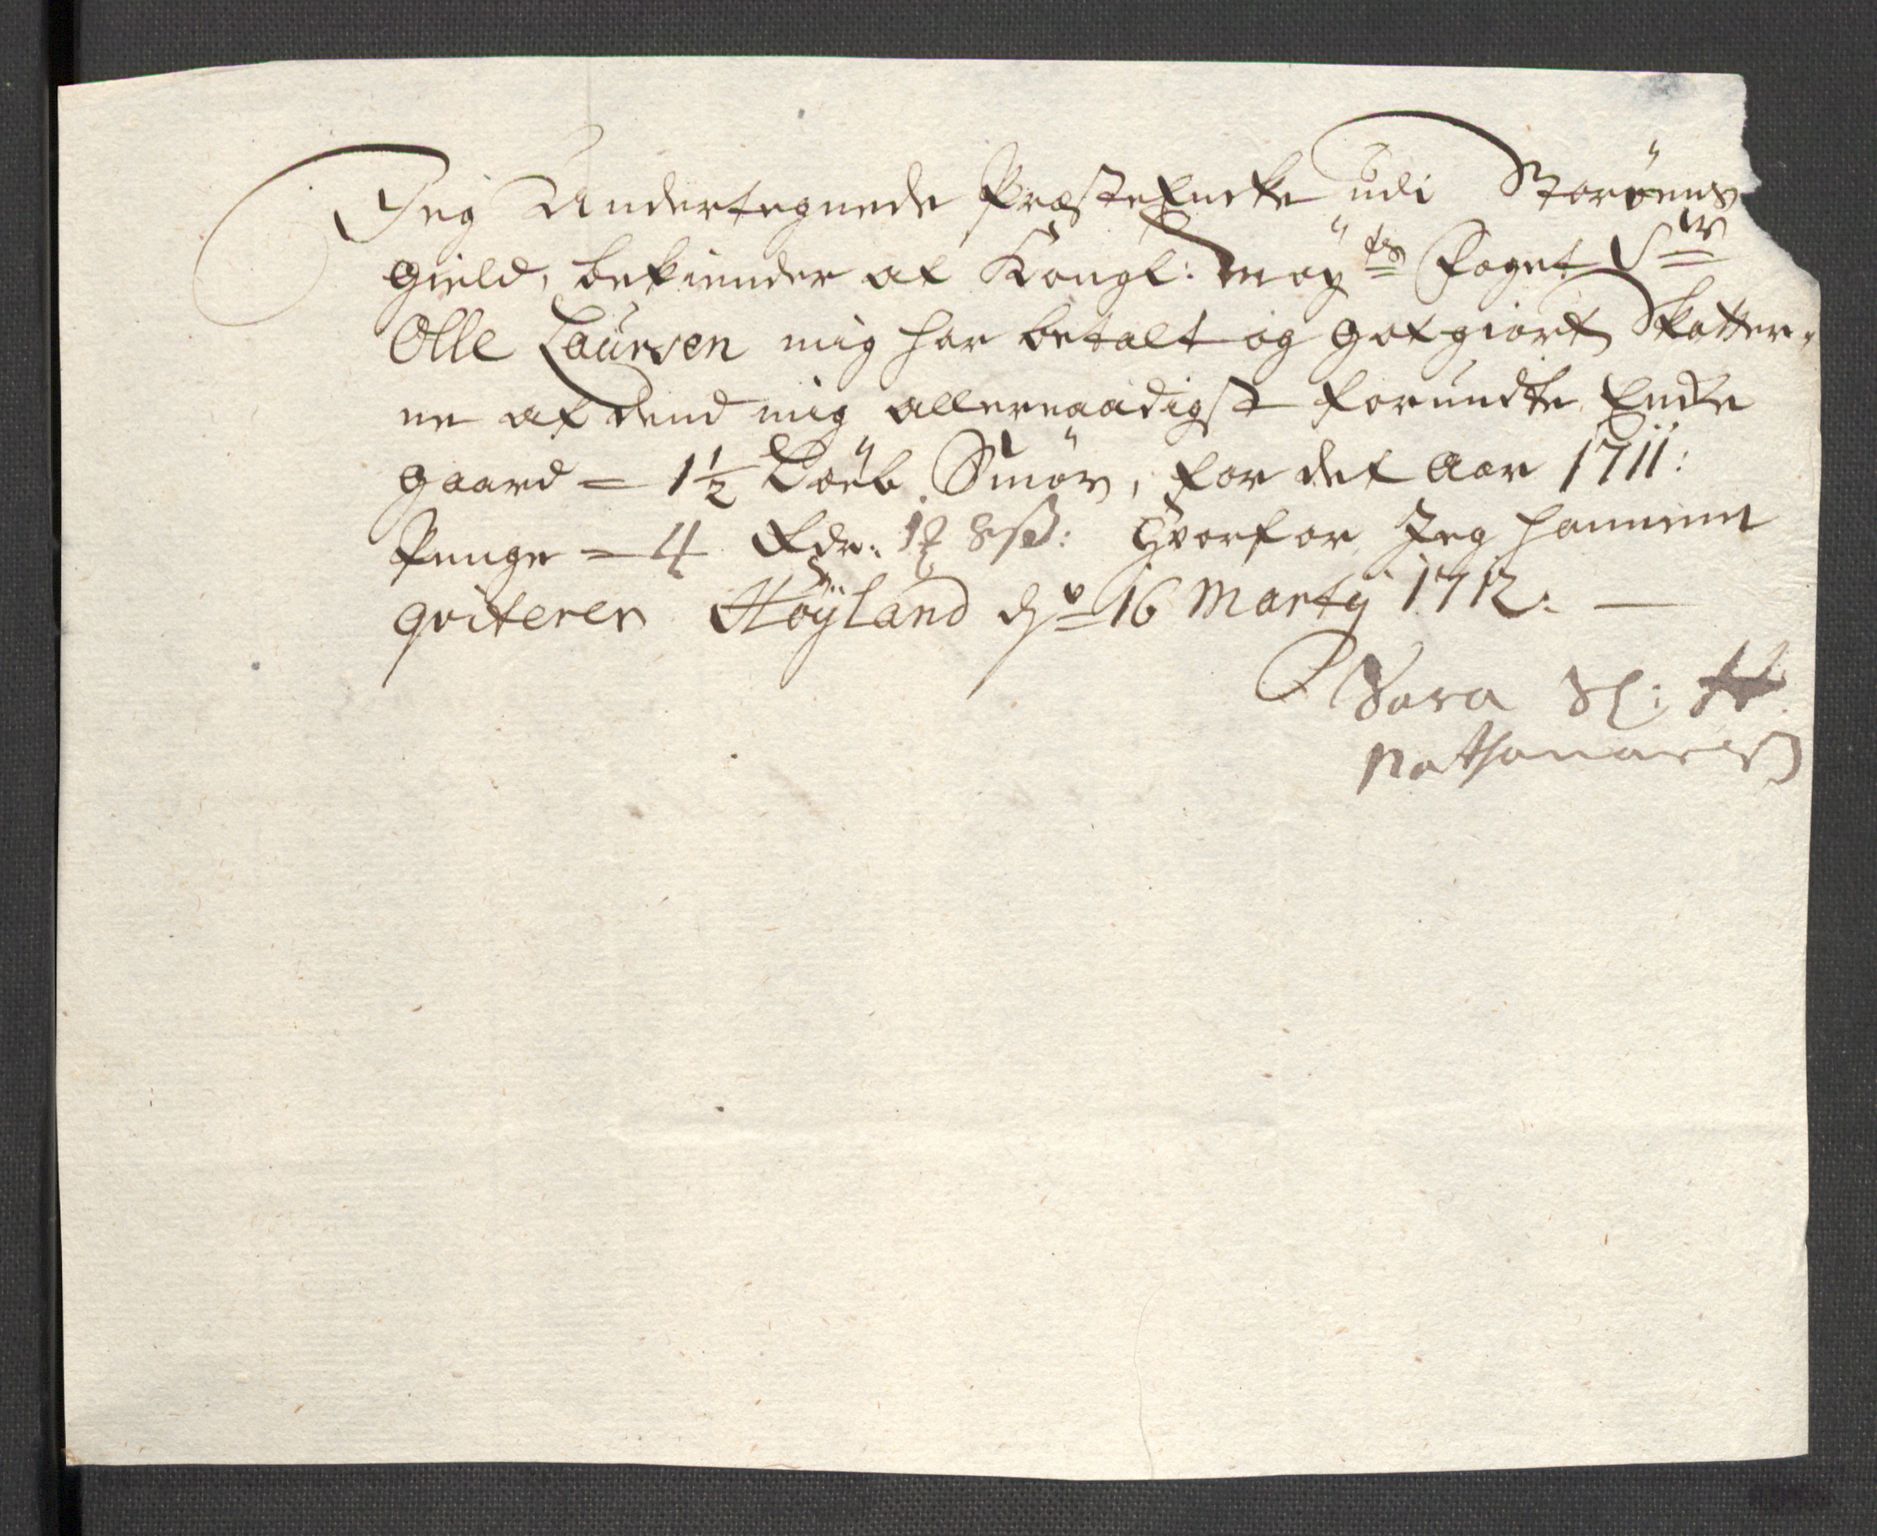 Jeg Undertegnede PræsteEncke udi Storöens
gield, bekiender at Kongl: Mayts Foget Sr
Olle Laursen mig har betalt og gotgiort Skatter-
ne af dend mig allernaadigst forundte Encke
gaard = 1½ Löb Smör, for det Aar 1711:
Penge = 4 Rdr: 12 ss: Hvorfor Jeg hannem
qviterer Höyland dn 16 Martij 1712: —
Sara Sl: H